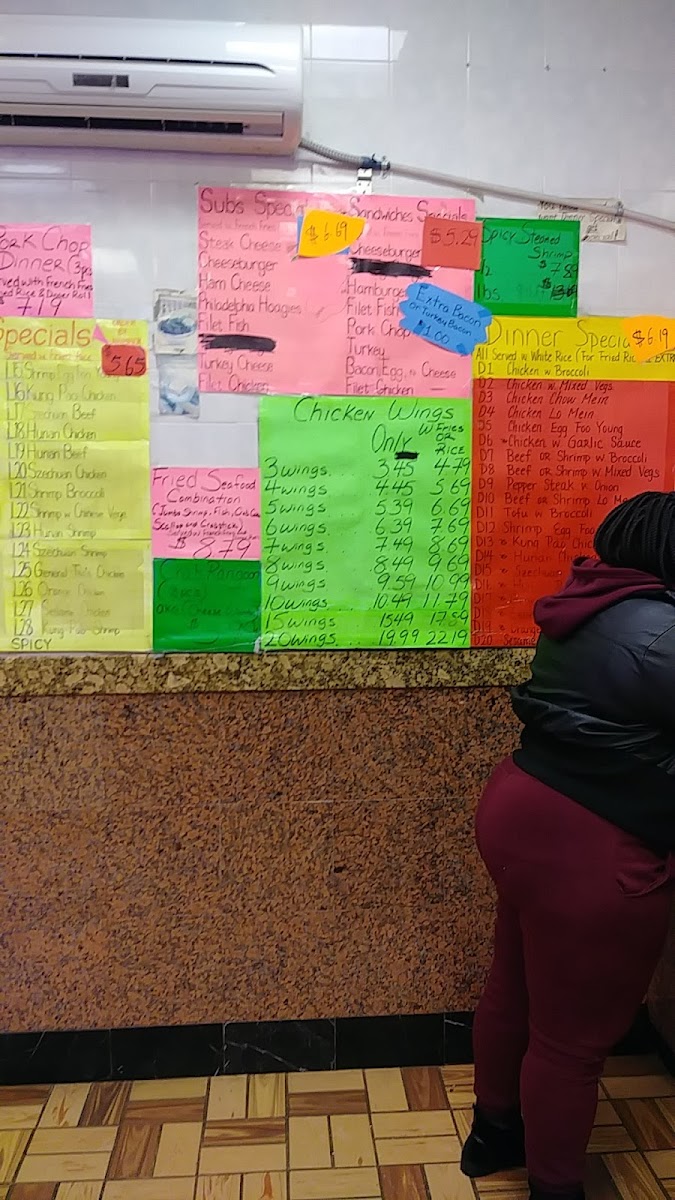 Pork Chop
Dinner (3pcs
$7.19
Specials
$5.65
L16 Kung Pao Chicken
L17 Szechuan Beef
L18 Hunan Chicken
L19 Hunan Beef
L20 Szechuan Chicken
L21 Shrimp Broccoli
L22 Shrimp w Chinese Vegs
L23 Hunan Shrimp
L24 Szechuan Shrimp
L25 General Tso's Chicken
L26 Orange Chicken
L27 Sesame Chicken
L28 Kung Pao Shrimp
SPICY
Subs
$6.69
Steak Cheese
Cheeseburger
Ham Cheese
Philadelphia Hoagies
Filet Fish
Turkey Cheese
Filet Chicken
Sandwiches Specials
$5.29
Cheeseburger
Hamburger
Filet Fish
Pork Chop
Turkey
Bacon, Egg, N Cheese
Filet Chicken
Extra Bacon
Or Turkey Bacon
$1.00
Spicy Steamed
Shrimp
Fried Seafood
Combination
(Jumbo Shrimp, Fish, Crab Cake
Scallop and Crabstick)
$8.79
Crab Rangoon
Chicken Wings
Only W FRIES OR RICE
3 wings 3.45 4.79
4 wings 4.45 5.69
5 wings 5.39 6.69
6 wings 6.39 7.69
7 wings 7.49 8.69
8 wings 8.49 9.69
9 wings 9.59 10.99
10 wings 10.49 11.79
15 wings 15.49 17.89
20 wings 19.99 22.19
Dinner
$6.19
All Served w White Rice (For Fried
D1 Chicken w Broccoli
D2 Chicken w Mixed Vegs
D3 Chicken Chow Mein
D4 Chicken Lo Mein
D5 Chicken Egg Foo Young
D6 Chicken w Garlic Sauce
D7 Beef OR Shrimp w Broccoli
D8 Beef OR Shrimp w Mixed Vegs
D9 Pepper Steak w Onion
D10 Beef OR Shrimp Lo
D11 Tofu w Broccoli
D12 Shrimp Egg Foo
D13 Kung Pao
D14 Hunan
D20